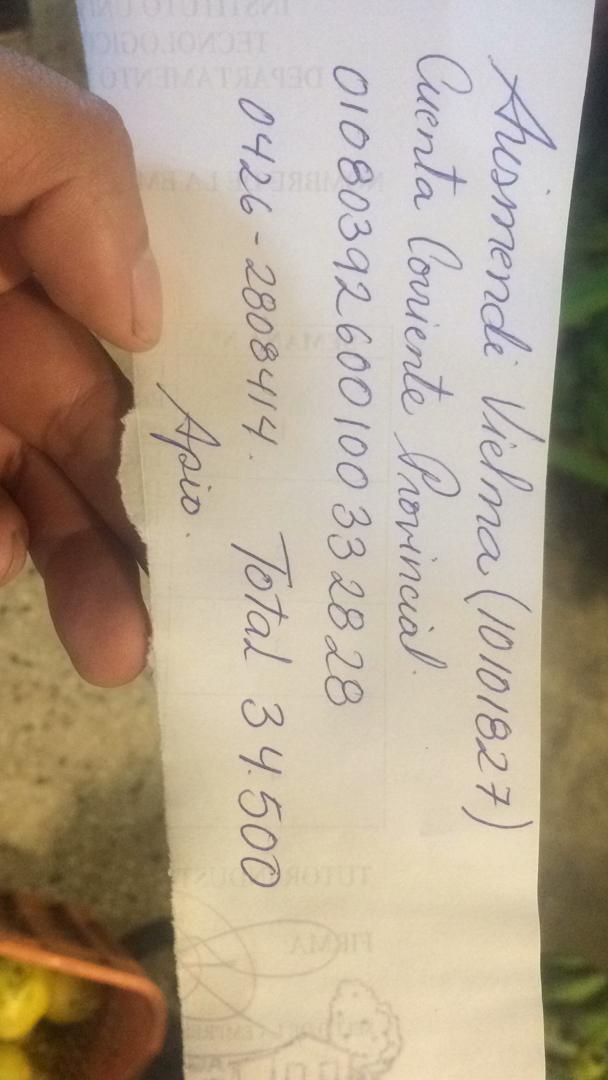 Arismendi Vielma (10101827)
Cuenta Corriente Provincial.
01080392600100332828
0426-2808414. Total 34.500
Apio.
INSTITUTO UNI
TECNOLOGICO
DEPARTAMENTO
NOMBRE DE LA EM
TUTOR INDUST
FIRMA: